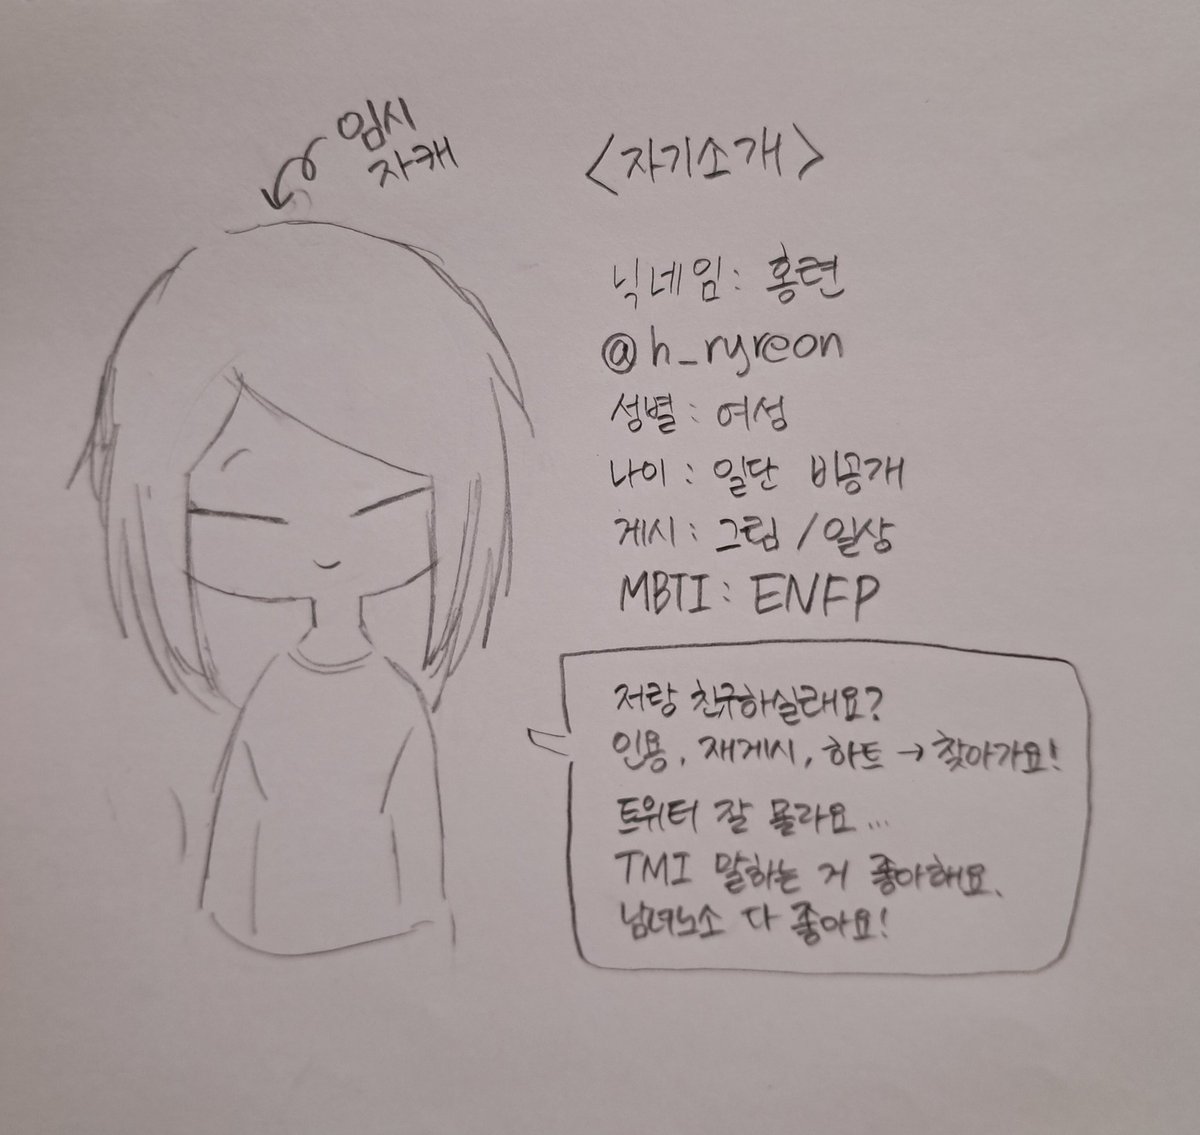 임시
자캐
<자기소개>
닉네임: 홍련
@h_ryreon
성별: 여성
나이: 일단 비공개
게시: 그림/일상
MBTI: ENFP
저랑 친구하실래요?
인용, 재게시, 하트→찾아가요!
트위터 잘 몰라요...
TMI 말하는 거 좋아해요.
남녀노소 다 좋아요!